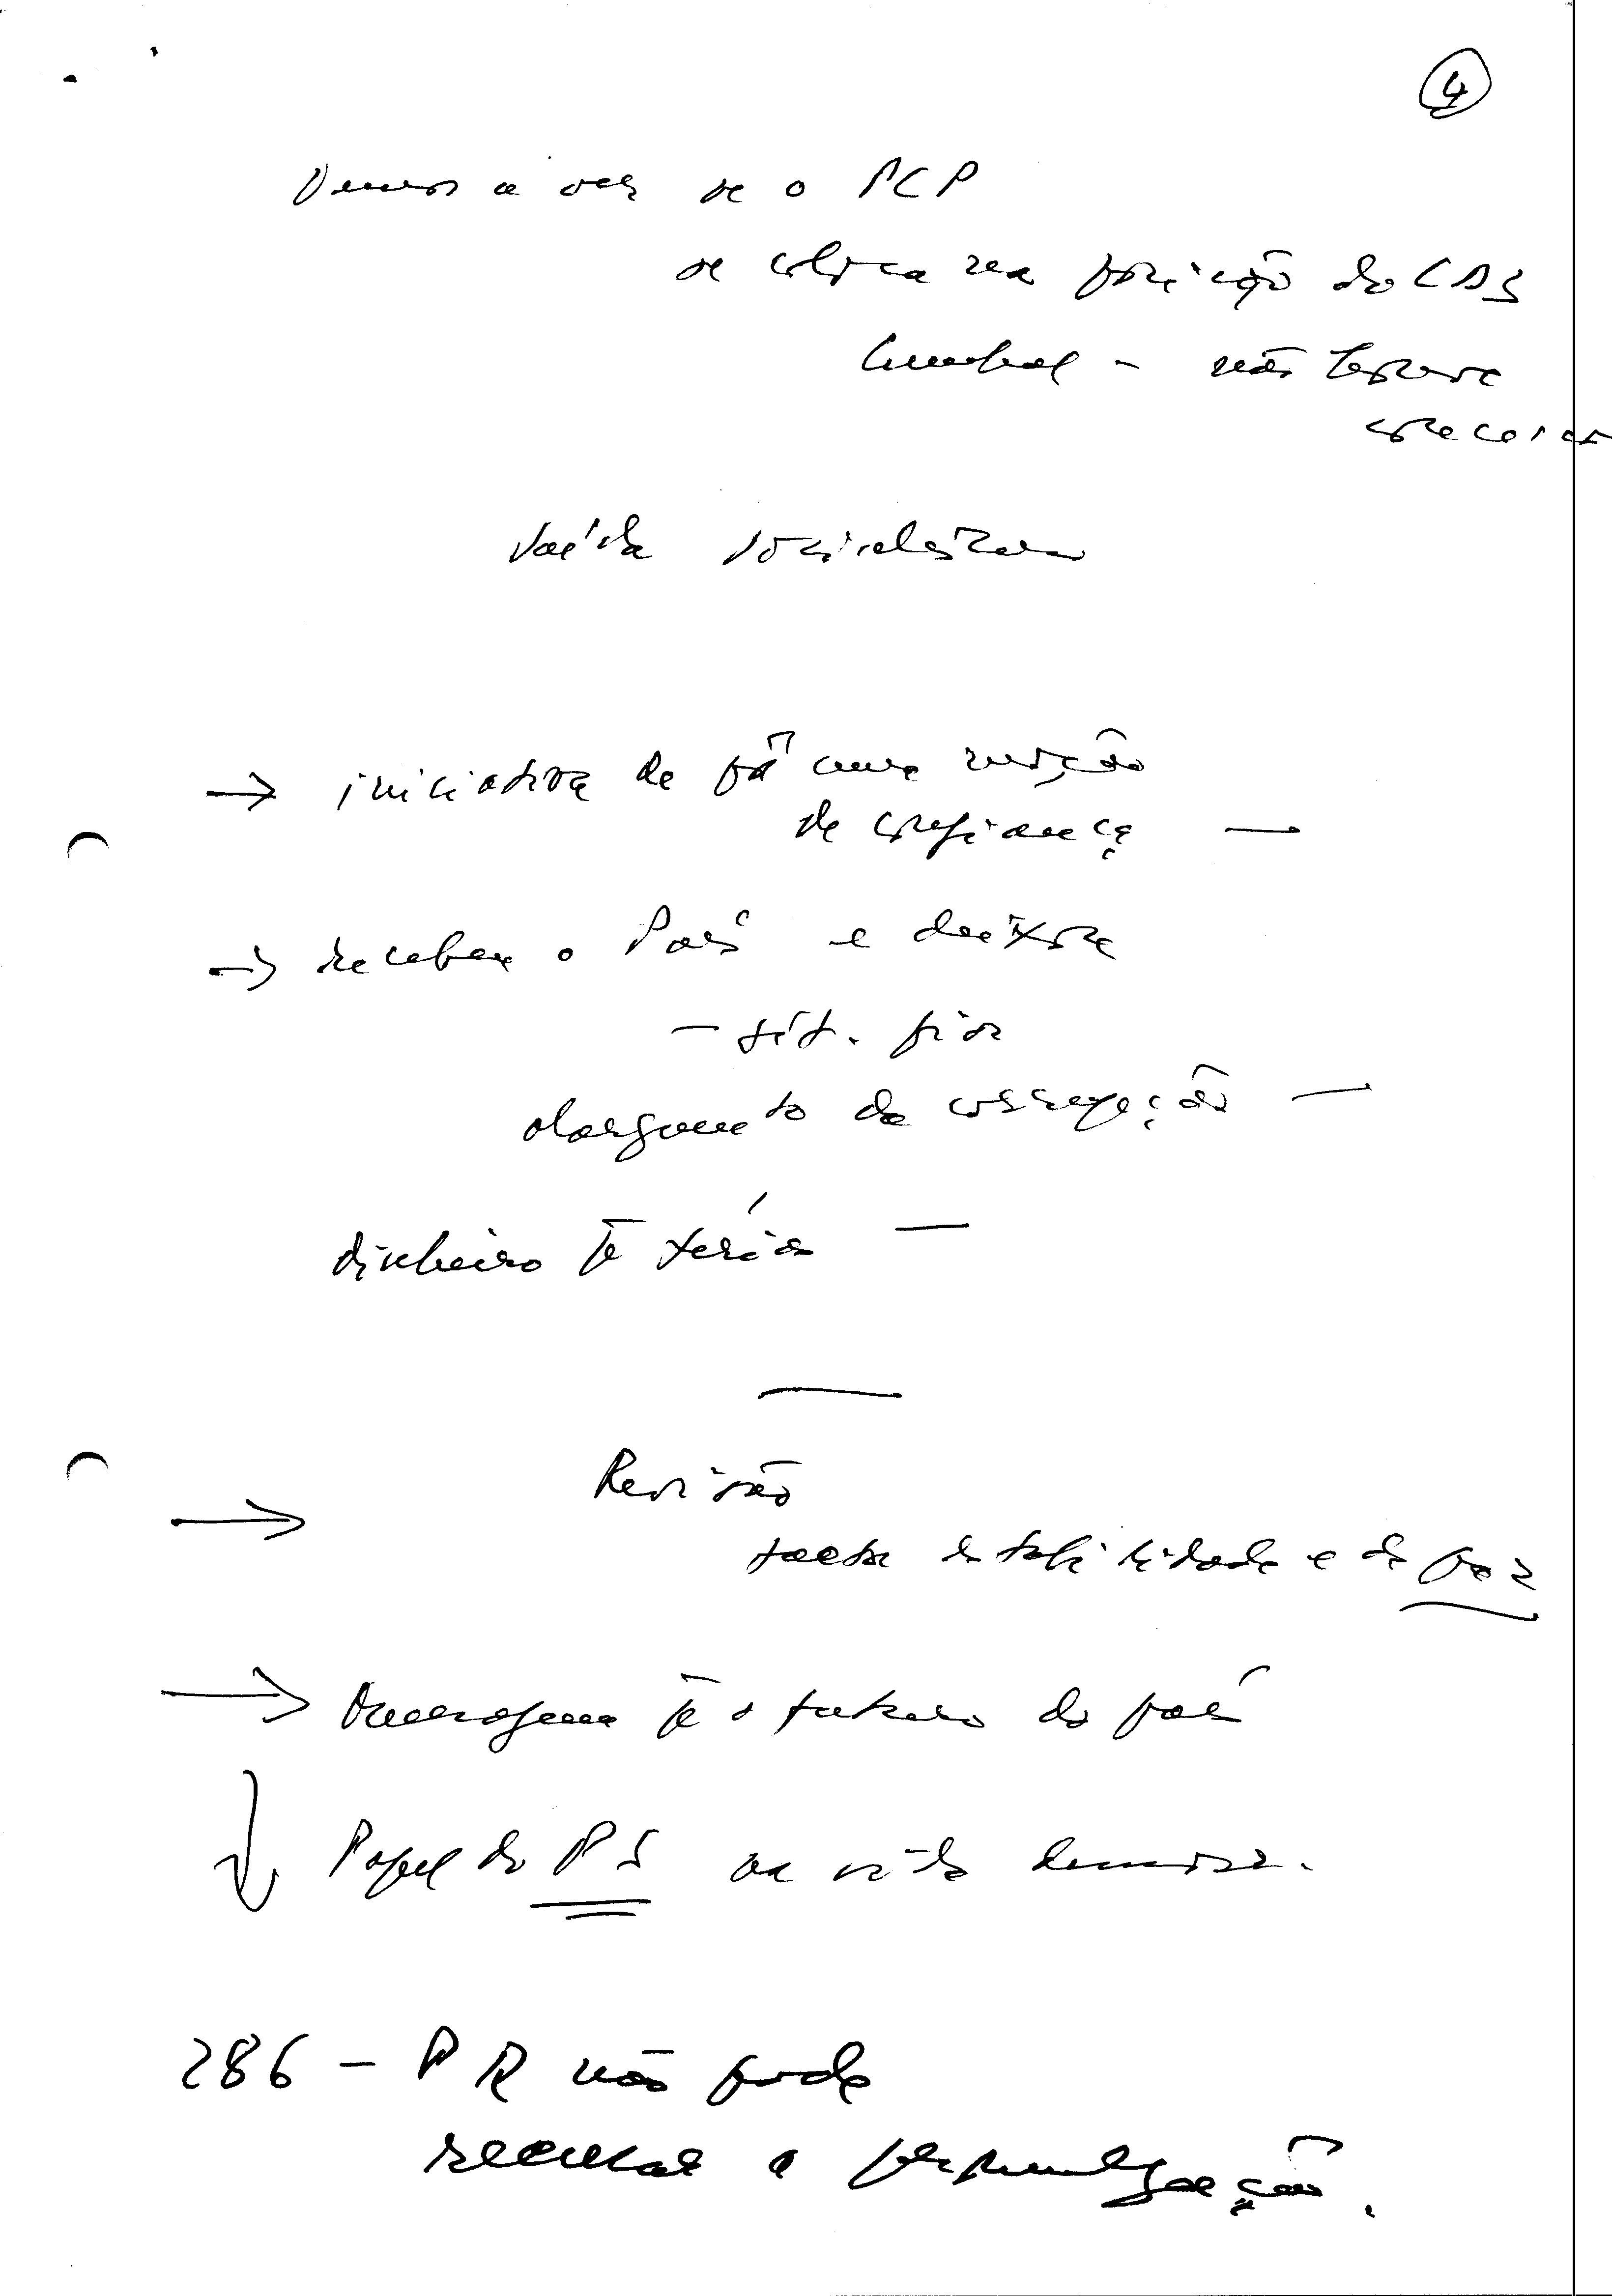 4
Vamos a ver se o PCP
se coloca na posição do CDS
lembrar - não
saída socialista
→ iniciativa de pôr uma moção
de confiança —
→ recebem o País e deixam
- sit. pior
alargamento da corrupção —
dinheiro p̄ férias —
Revisão
→ factor estabilidade e de paz
→ Mensagem p̄ o futuro do país
Papel do PS na vida democr.
286 - PR não pode
recusar a promulgação.